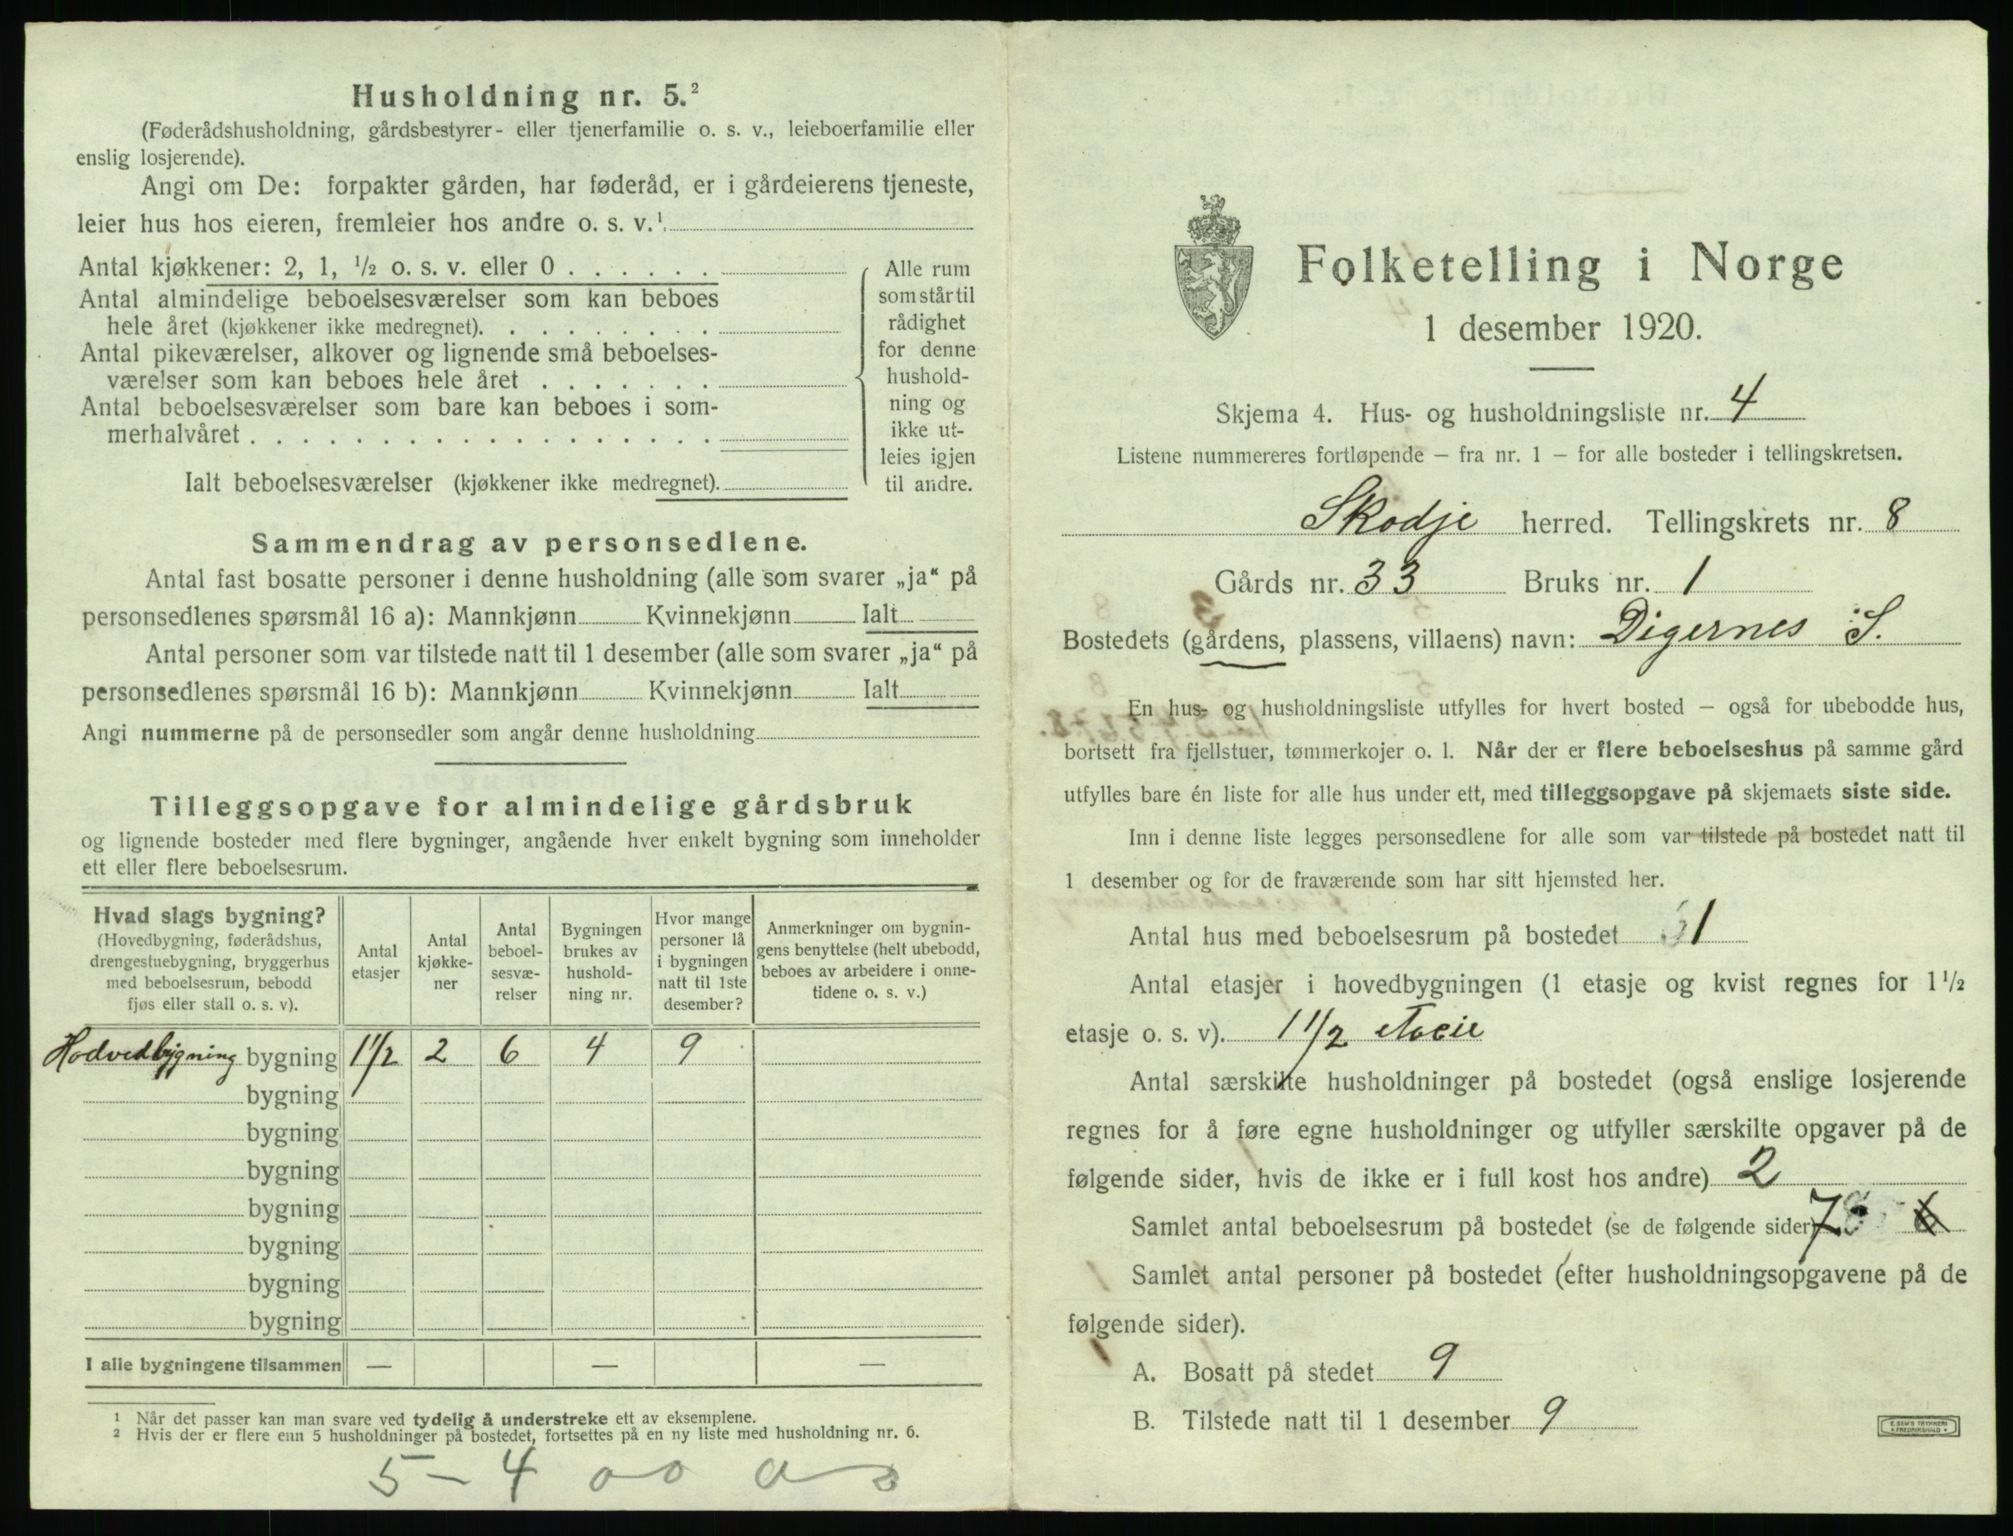 Husholdning nr. 5.²
(Føderådshusholdning, gårdsbestyrer- eller tjenerfamilie o. s. v., leieboerfamilie eller
enslig losjerende).
Angi om De: forpakter gården, har føderåd, er i gårdeierens tjeneste,
leier hus hos eieren, fremleier hos andre o. s. v.¹
Antal kjøkkener: 2, 1, ½ o. s. v. eller 0 . . . . . .
Antal almindelige beboelsesværelser som kan beboes
hele året (kjøkkener ikke medregnet). . . . . . . . .
Antal pikeværelser, alkover og lignende små beboelses-
værelser som kan beboes hele året . . . . . . .
Antal beboelsesværelser som bare kan beboes i som-
merhalvåret . . . . . . . . . . . . . . . . . .
Alle rum
som står til
rådighet
for denne
hushold-
ning og
ikke ut-
leies igjen
til andre.
Ialt beboelsesværelser (kjøkkener ikke medregnet).
Sammendrag av personsedlene.
Antal fast bosatte personer i denne husholdning (alle som svarer „ja“ på
personsedlenes spørsmål 16 a): Mannkjønn Kvinnekjønn Ialt
Antal personer som var tilstede natt til 1 desember (alle som svarer „ja“ på
personsedlenes spørsmål 16 b): Mannkjønn Kvinnekjønn Ialt
Angi nummerne på de personsedler som angår denne husholdning
Tilleggsopgave for almindelige gårdsbruk
og lignende bosteder med flere bygninger, angående hver enkelt bygning som inneholder
ett eller flere beboelsesrum.
Hvad slags bygning?
(Hovedbygning, føderådshus,
drengestuebygning, bryggerhus
med beboelsesrum, bebodd
fjøs eller stall o. s. v).
Antal
etasjer
Antal
kjøkke-
ner
Antal
beboel-
sesvæ-
relser
Bygningen
brukes av
hushold-
ning nr.
Hvor mange
personer lå
i bygningen
natt til 1ste
desember?
Anmerkninger om bygnin-
gens benyttelse (helt ubebodd,
beboes av arbeidere i onne-
tidene o. s. v.)
Hodvedbygning bygning 1 1/2 2 6 4 9
bygning
bygning
bygning
bygning
bygning
bygning
bygning
I alle bygningene tilsammen — — —
¹ Når det passer kan man svare ved tydelig å understreke ett av eksemplene.
² Hvis der er flere enn 5 husholdninger på bostedet, fortsettes på en ny liste med husholdning nr. 6.
5 – 4 0 0 0 – 0
Folketelling i Norge
1 desember 1920.
Skjema 4. Hus- og husholdningsliste nr. 4
Listene nummereres fortløpende – fra nr. 1 – for alle bosteder i tellingskretsen.
Skodje herred. Tellingskrets nr. 8
Gårds nr. 33 Bruks nr. 1
Bostedets (gårdens, plassens, villaens) navn: Digernes S.
En hus- og husholdningsliste utfylles for hvert bosted – også for ubebodde hus,
bortsett fra fjellstuer, tømmerkojer o. l. Når der er flere beboelseshus på samme gård
utfylles bare én liste for alle hus under ett, med tilleggsopgave på skjemaets siste side.
Inn i denne liste legges personsedlene for alle som var tilstede på bostedet natt til
1 desember og for de fraværende som har sitt hjemsted her.
Antal hus med beboelsesrum på bostedet 1
Antal etasjer i hovedbygningen (1 etasje og kvist regnes for 1½
etasje o. s. v). 1 1/2 etacie
Antal særskilte husholdninger på bostedet (også enslige losjerende
regnes for å føre egne husholdninger og utfyller særskilte opgaver på de
følgende sider, hvis de ikke er i full kost hos andre) 2
Samlet antal beboelsesrum på bostedet (se de følgende sider) 7 6
Samlet antal personer på bostedet (efter husholdningsopgavene på de
følgende sider).
A. Bosatt på stedet 9
B. Tilstede natt til 1 desember 9
E. SEM'S TRYKKERI
FREDRIKSHALD